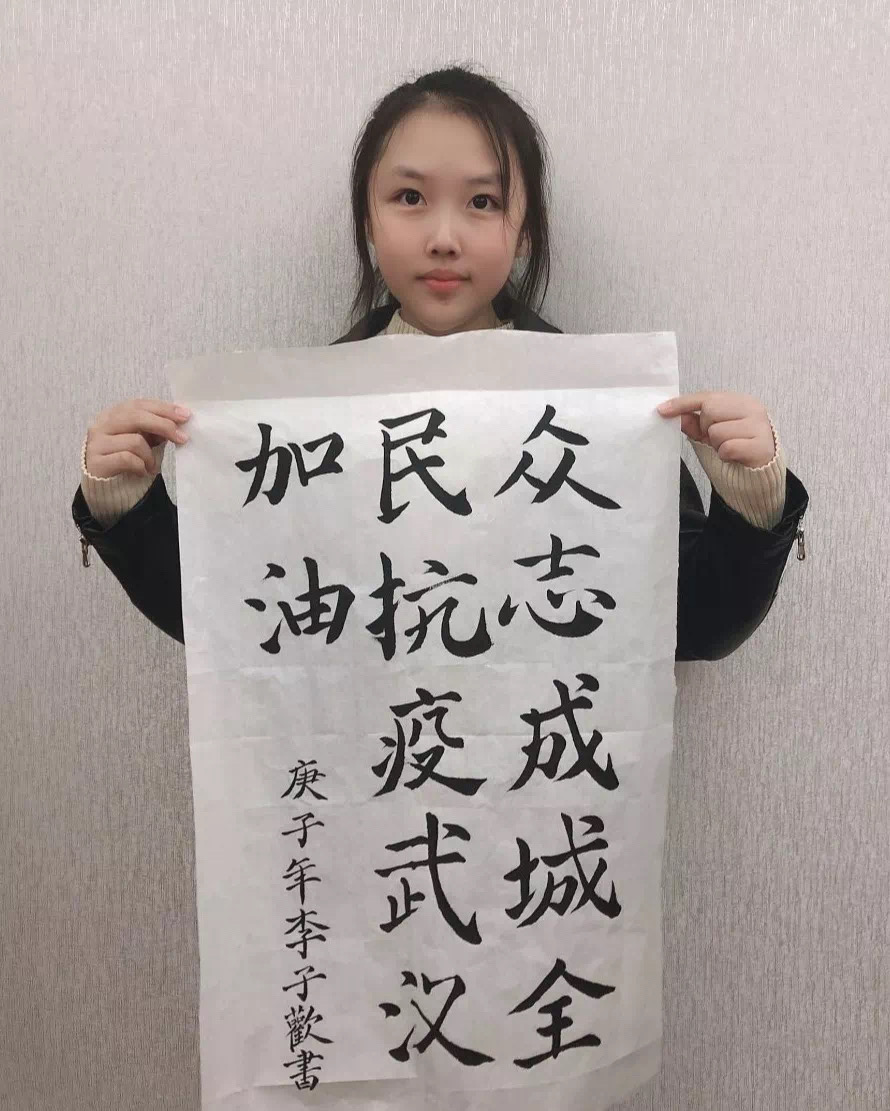 众志成城全
民抗疫武汉
加油
庚子年李子歡書